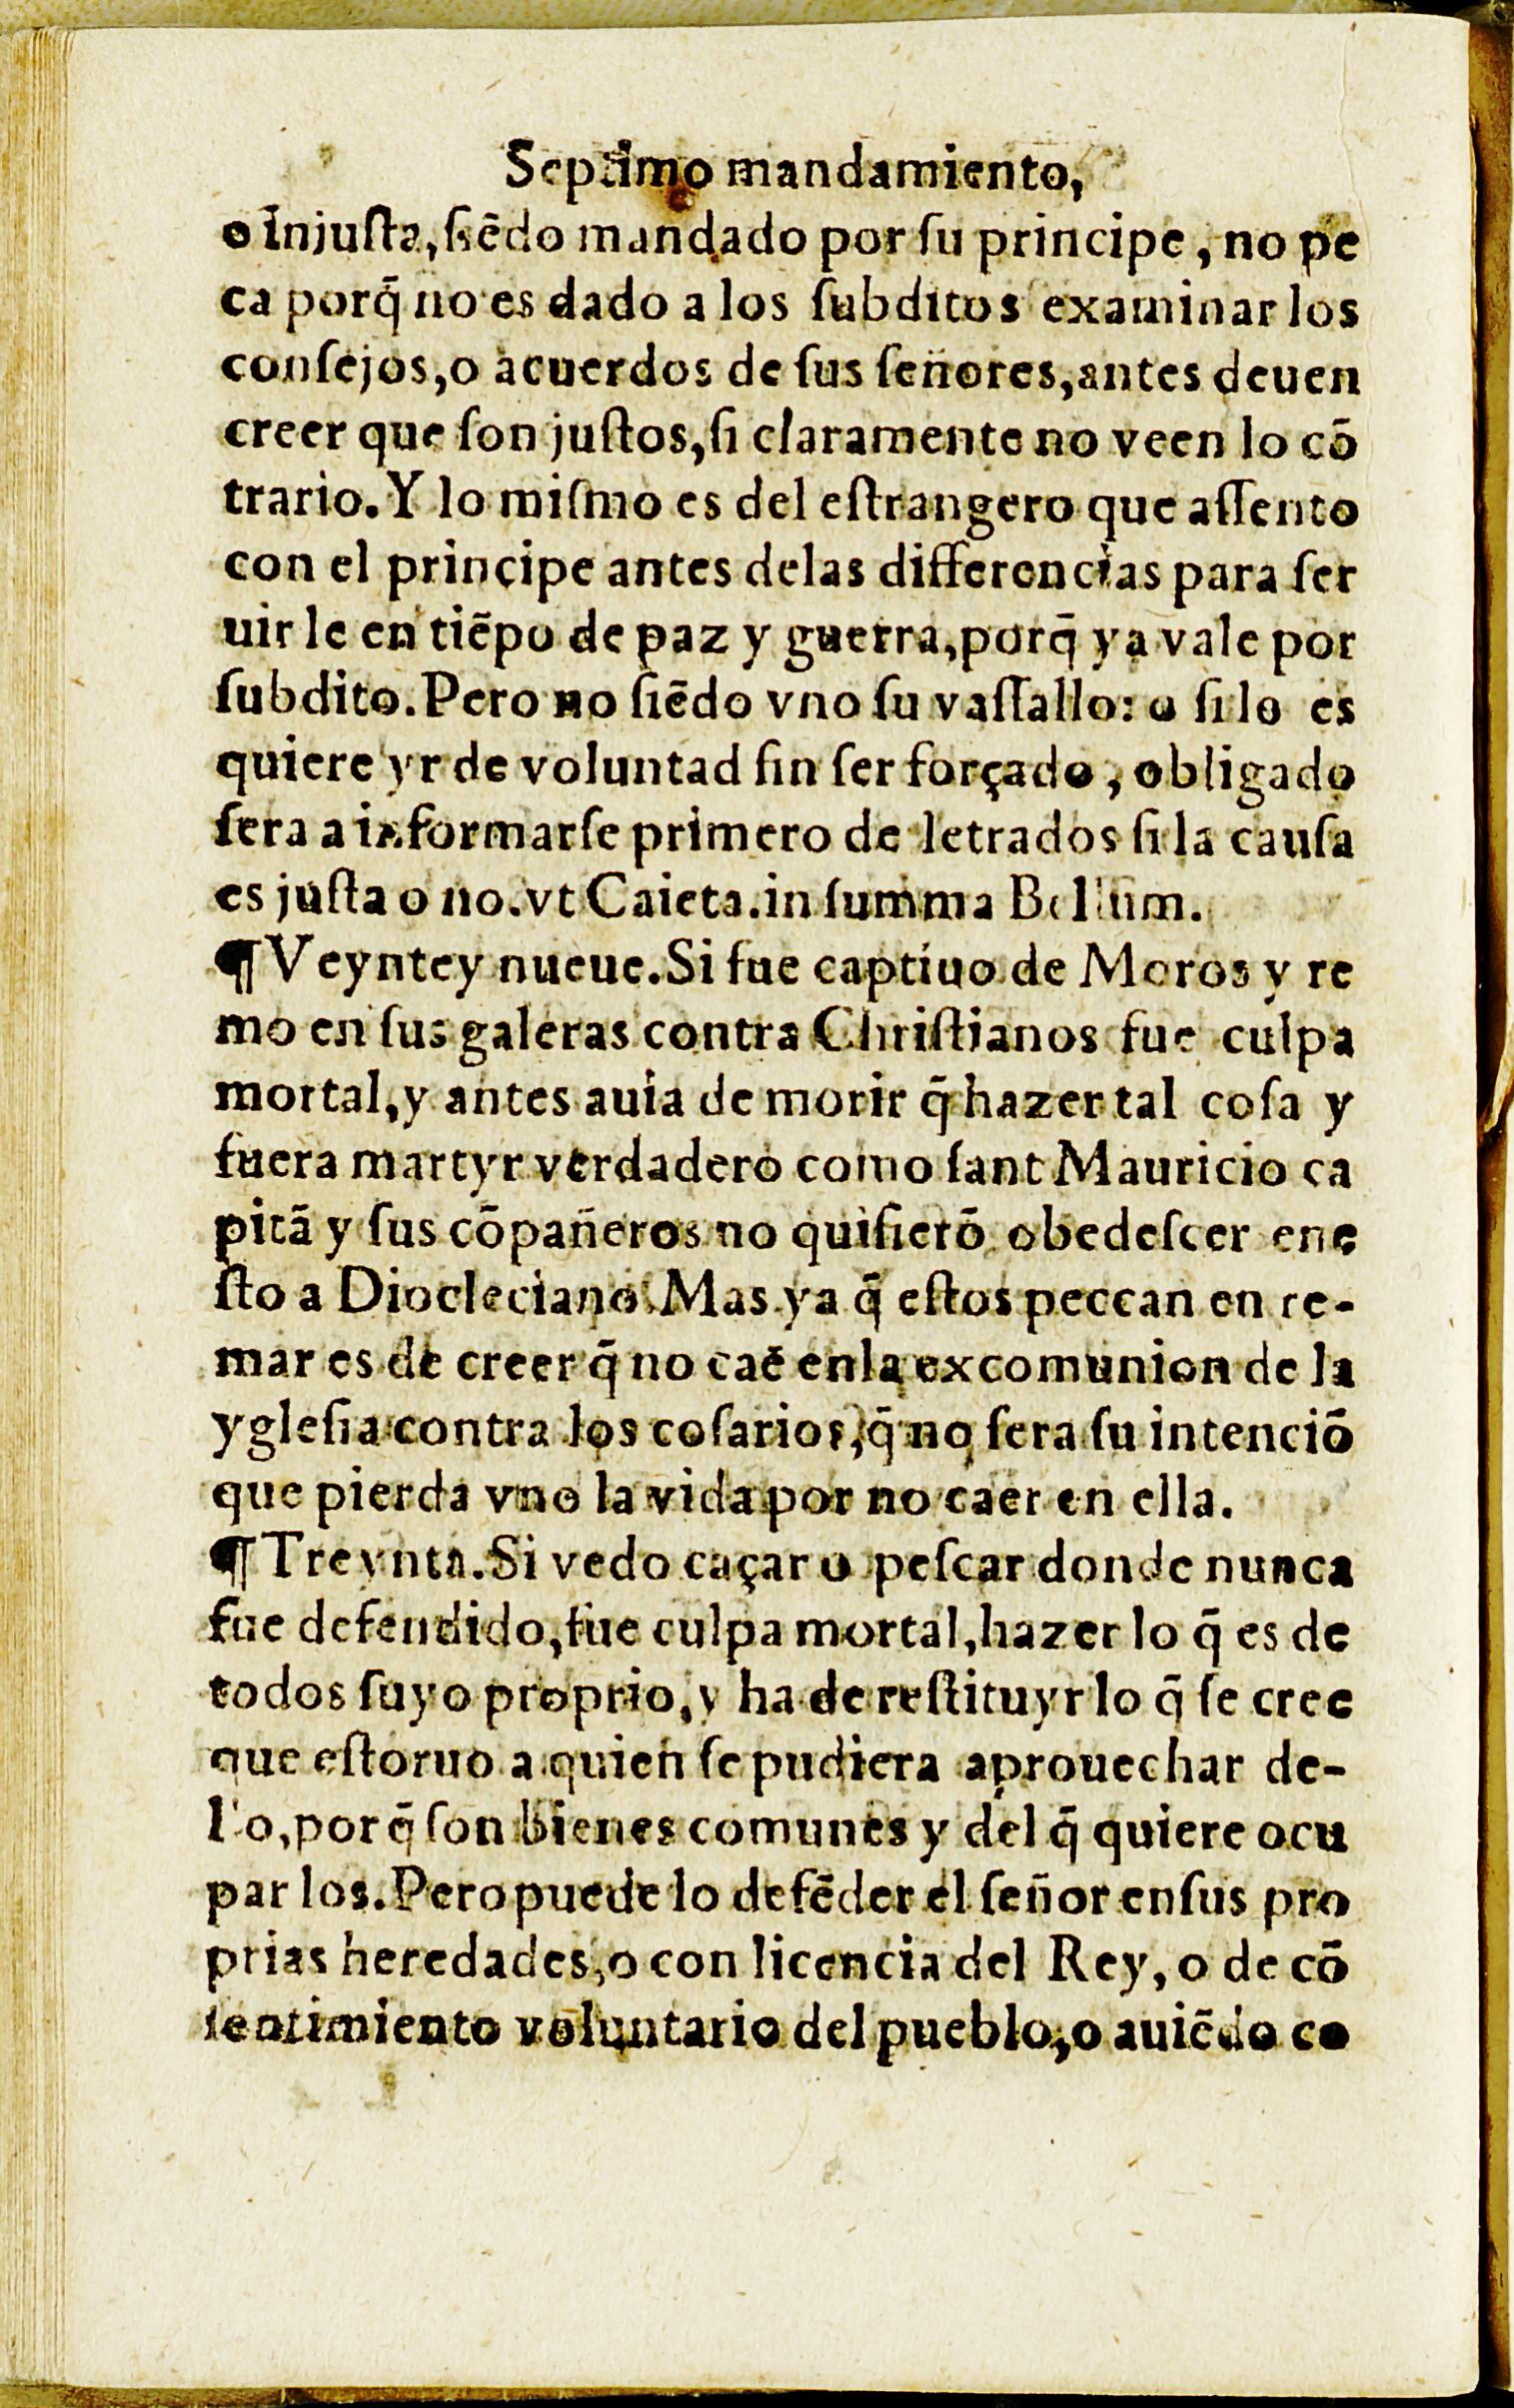 Septimo mandamiento,
o injuſta, ſiēdo mandado por ſu principe, no pe
ca porq̄ no es dado a los ſubditos examinar los
conſejos, o acuerdos de ſus ſeñores, antes deuen
creer que ſon juſtos, ſi claramente no veen lo cō
trario. Y lo miſmo es del eſtrangero que aſſento
con el principe antes delas differencias para ſer
uir le en tiēpo de paz y guerra, porq̄ ya vale por
ſubdito. Pero no ſiēdo vno ſu vaſſallo: o ſi lo es
quiere yr de voluntad ſin ſer forçado, obligado
ſera a informarſe primero de letrados ſi la cauſa
es juſta o no. vt Caieta. in ſumma Bellum.
¶ Veyntey nueue. Si fue captiuo de Moros y re
mo en ſus galeras contra Chriſtianos fue culpa
mortal, y antes auia de morir q̄ hazer tal coſa y
fuera martyr verdadero como ſant Mauricio ca
pitā y ſus cōpañeros no quiſierō obedeſcer ene
ſto a Diocleciano. Mas ya q̄ eſtos peccan en re-
mar es de creer q̄ no caē enla excomunion de la
ygleſia contra los coſarios, q̄ no ſera ſu intenciō
que pierda vno la vida por no caer en ella.
¶ Treynta. Si vedo caçar o peſcar donde nunca
fue defendido, fue culpa mortal, hazer lo q̄ es de
todos ſuyo proprio, y ha de reſtituyr lo q̄ ſe cree
que eſtoruo a quien ſe pudiera aprouechar de-
llo, porq̄ ſon bienes comunes y del q̄ quiere ocu
par los. Pero puede lo defēder el ſeñor enſus pro
prias heredades, o con licencia del Rey, o de cō
ſentimiento voluntario del pueblo, o auiēdo co